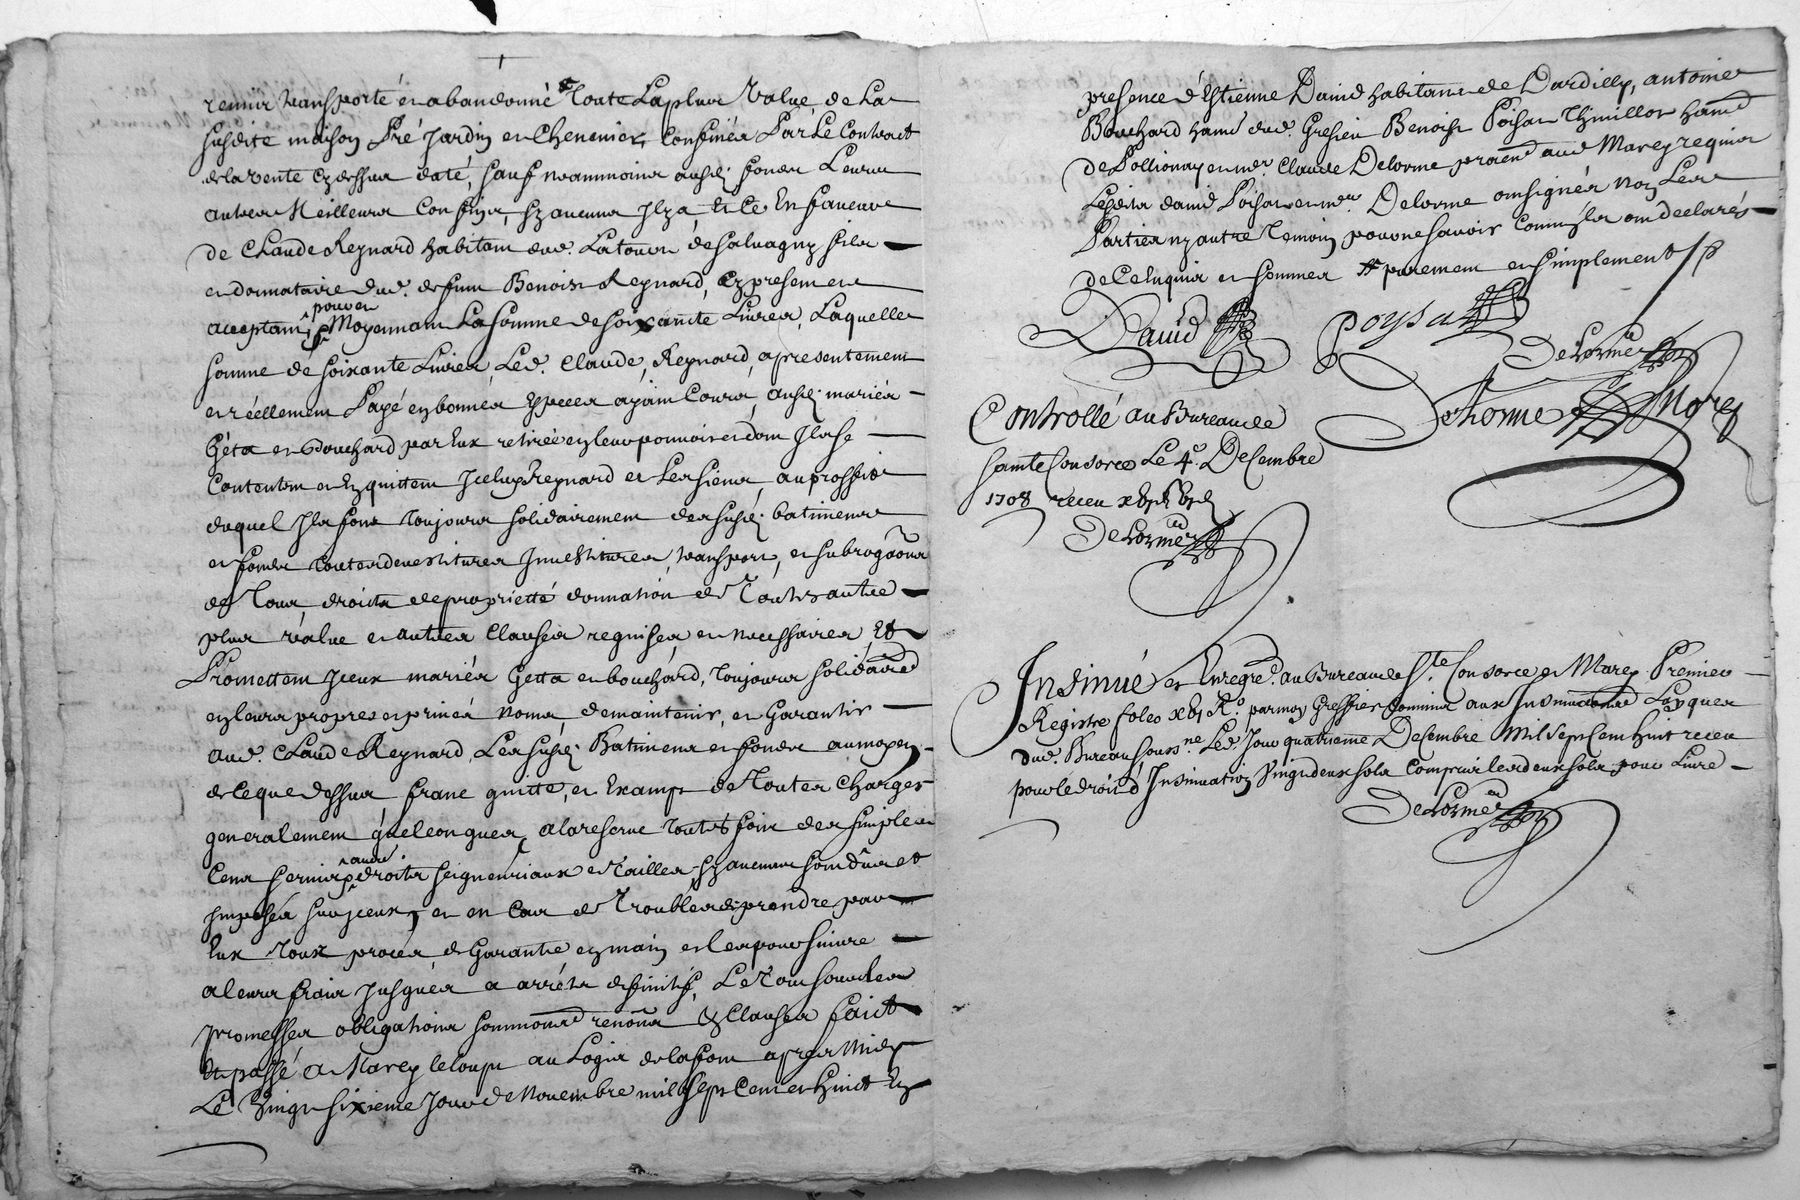 remis transporté et abandonné Toute La plus Value de La
susdite maison Pré Jardin et Chenevier, Confinés Par Le Contract
de la vente cydessus daté, sauf neammoins aud. fonds Leurs
autres Meilleurs Confins, sy aucuns Il y a Et Ce En faveur
de Claude Reynard habitant dud. La tour de Salvagny fils
et donnataire dud. deffunt Benoist Reynard, cy present et
acceptant, pour et Moyennant La somme de soixante Livres, Laquelle
somme de soixante Livres, Led. Claude Reynard, a presentement
et réellement Payé en bonnes Especes ayant Cours, ausd. mariés
Géta et Bouchard par Eux retirée en leur pouvoir et dont Ils se
Contentent et En quittent Iceluy Reynard et Les siens, au proffit
duquel Ils font Toujours solidairement des susd. batimens
et fonds toutes devestitures Investitures, transport, et subrogãons
de Tous droits de proprietté donnation de Toutes autre
plus value et autres Clauses requises, et necessaires Et
Promettent Iceux mariés Getta et bouchard, Toujours solidaires
en leurs propres et privés noms de maintenir, et Garantir
aud. Claude Reynard, Les susd. Batimens et fonds au moyen
de Ce que dessus franc quitte, et Exampt de Toutes Charges
generalement quelconques, a la reserve Toutes fois des simples
Cens servis, autres droits seigneuriaux et Tailles sy aucuns sont dûs et
Imposés sur Iceux, et en Cas de Troubles de prendre par
Eux Tous procés de Garantie en main et les poursuivre
a leurs frais Jusques a arrêts definitif, Le Tout sous les
promesses obligations sommons renons & Clauses faict
et passé a Marcy le loup au Logis de la font apres Midy
Le Vingt sixieme Jour de Novembre mil sept Cent et huict En
presence d'Estienne David habitant de Dardilly, antoine
Bouchard hant dud. Gresieu Benoist Poisat Thuillot hant
de Pollionay et Mr Claude Delorme procu aud Marcy requis
Lesdits david Poisat et mr Delorme ont signés non Les
Parties ny autre Temoin pour ne savoir Comm'Ils ont declarés
de Ce Enquis et sommés purement et simplement
David
Poysat
DeLorme
Delorme
Morel
Controllé au Bureau de
Sainte Consorce Le 4e. Decembre
1708 receu
DeLorme
Insinué et Enregré. au Bureau de Ste Consorce et Marcy Premier
Registre foleo Ro. par moy Greffier Commis aux Insinuations Layques
dud. Bureau souss.né Led. Jour quatrieme Decembre Mil sept Cent huit receu
pour le droit d'Insinuation Vingt deux sols Compris les deux sols pour Livre
DeLorme